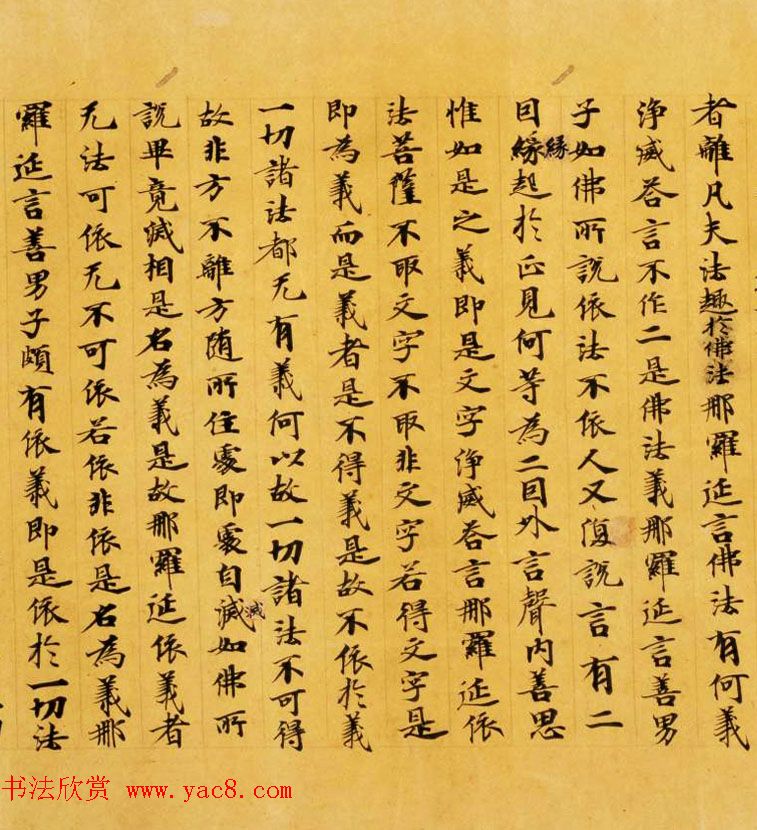 者離凡夫法趣於佛法那羅延言佛法有何義
淨威荅言不作二是佛法義那羅延言善男
子如佛所說依法不依人又復說言有二
因緣緣起於正見何等為二因外言聲內善思
惟如是之義即是文字淨威荅言那羅延依
法菩薩不取文字不取非文字若得文字是
即為義而是義者是不得義是故不依於義
一切諸法都无有義何以故一切諸法不可得
故非方不離方随所住處即處自滅滅如佛所
說畢竟滅相是名為義是故那羅延依義者
无法可依无不可依若依非依是名為義那
羅延言善男子頗有依義即是依於一切法
书法欣赏 www.yac8.com